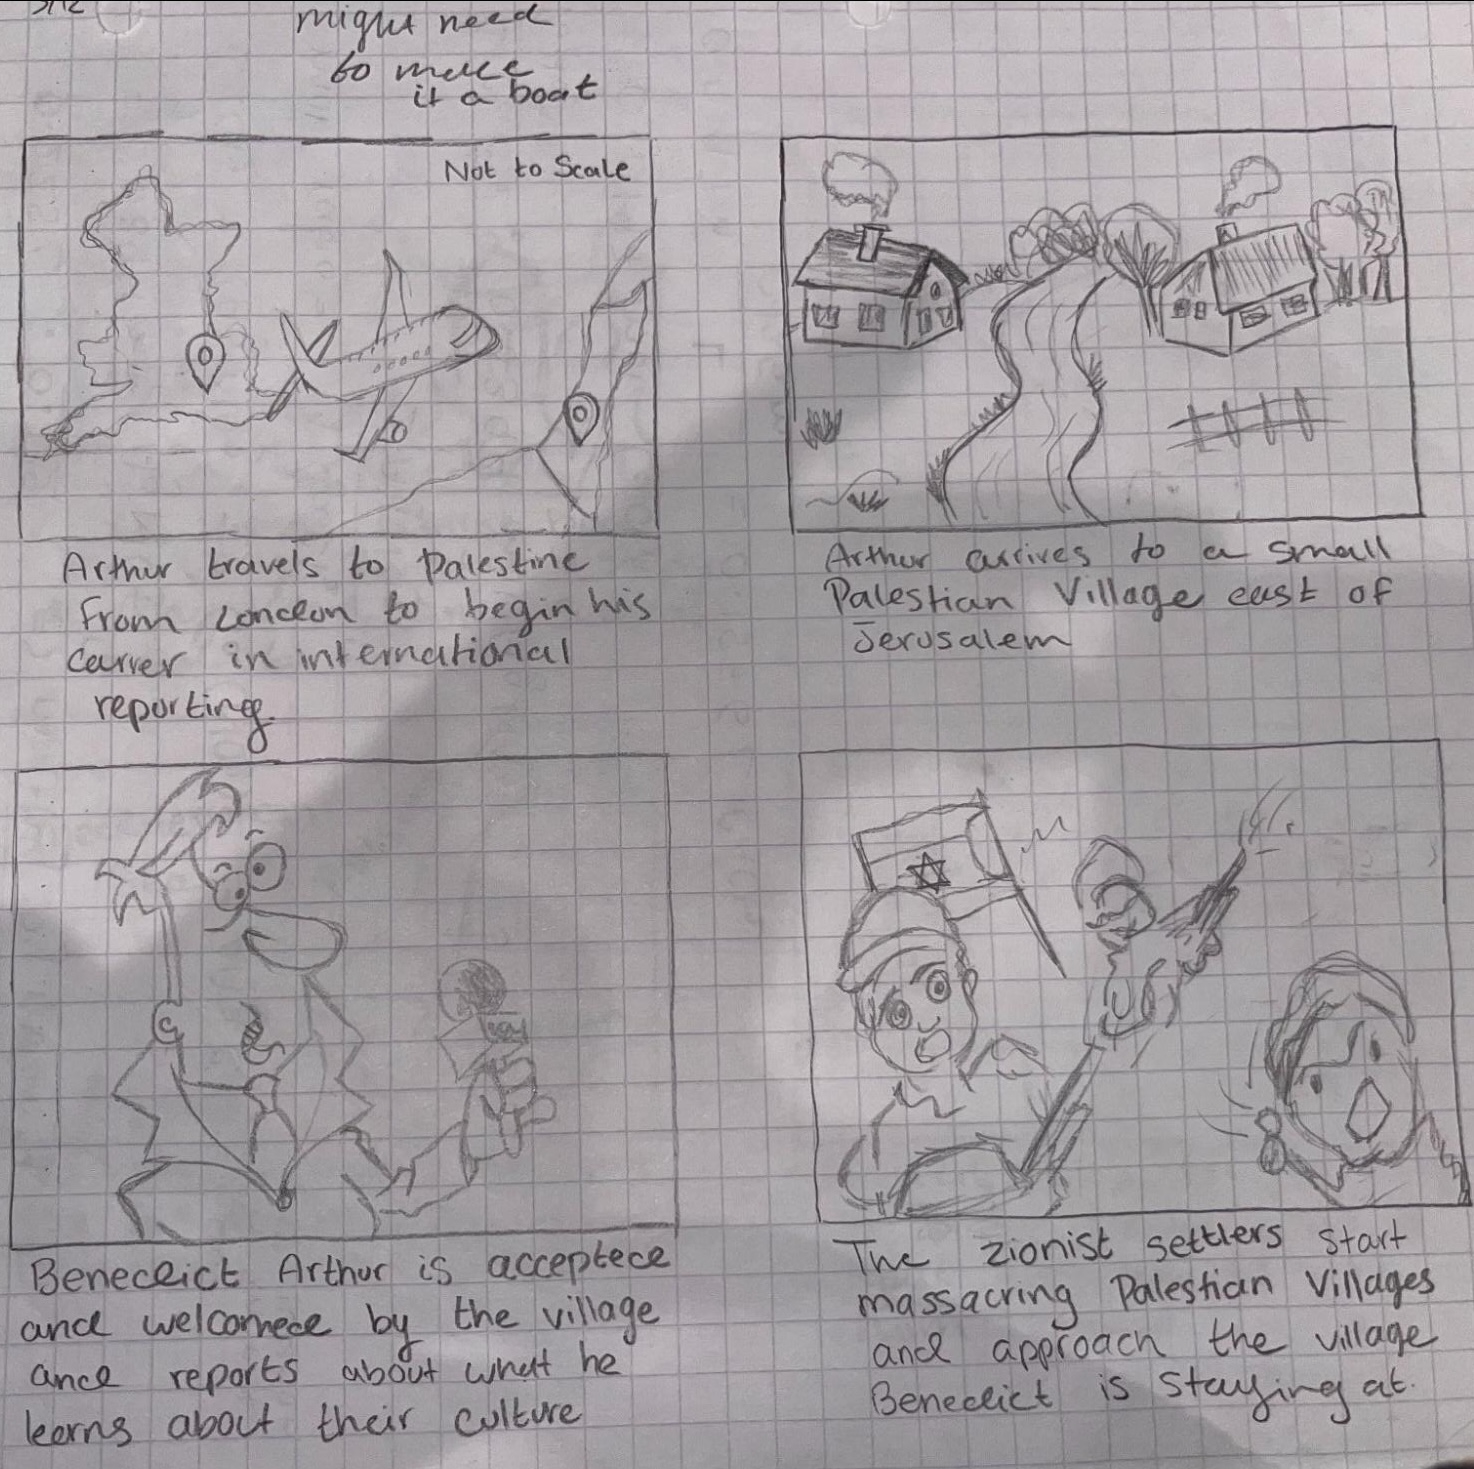 might need
to make
it a boat
Not to Scale
Arthur travels to Palestine
from London to begin his
carrer in international
reporting
Arthur arrives to a small
Palestian Village east of
Jerusalem
Benedict Arthur is accepted
and welcomed by the village
and reports about what he
lerns about their culture
The zionist settlers start
massacring Palestian Villages
and approach the village
Benedict is staying at.